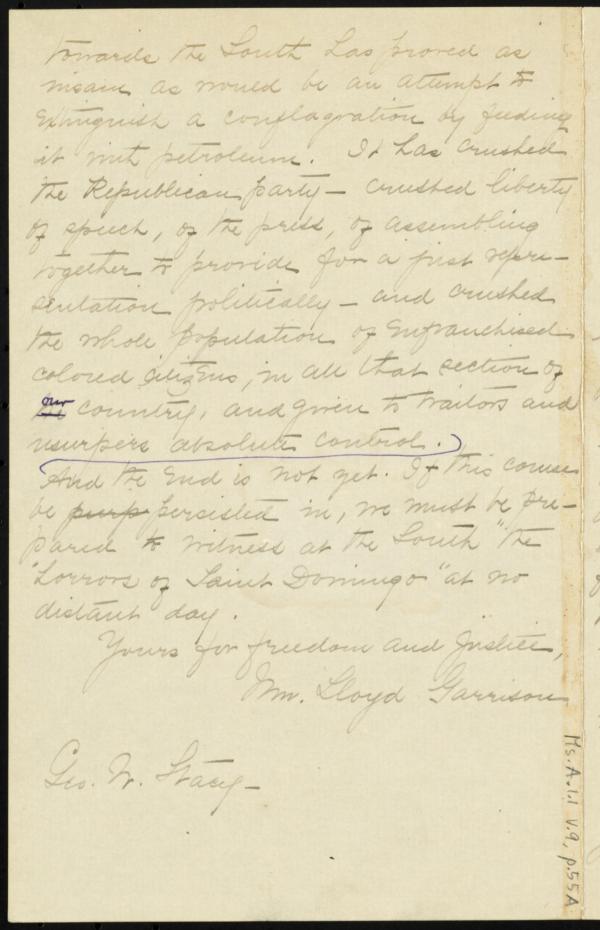 towards the South has proved as
insane as would be an attempt to
extinguish a conflagration by feeding
it with petroleum. It has crushed
the Republican party — crushed liberty
of speech, of the press, of assembling
together to provide for a just repre-
sentation politically — and crushed
the whole population of enfranchised
colored citizens, in all that section of
our country, and given to traitors and
usurpers absolute control.)
And the end is not yet. If this course
be purp persisted in, we must be pre-
pared to witness at the South "the
"horrors of Saint Domingo" at no
distant day.
Yours for freedom and justice,
Wm. Lloyd Garrison
Geo. W. Stacy —
Ms. A. 1.1 v. 9, p. 55A